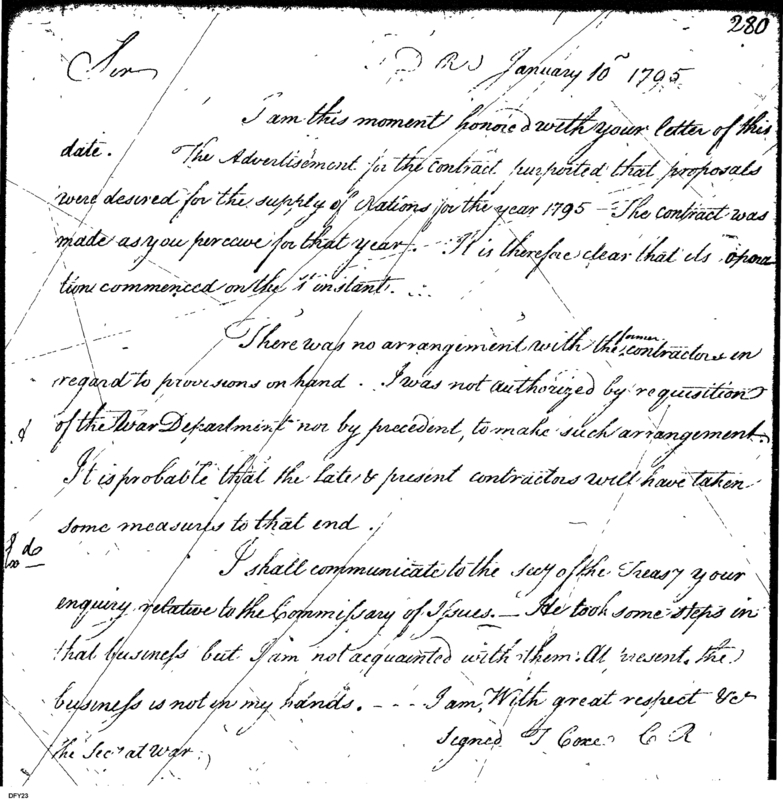 280
Sir
D R O January 10 1795
I am this moment honored with your letter of this
date. The Advertisement for the contract purported that proposals
were desired for the supply of Rations for the year 1795 – The contract was
made as you perceive for that year. It is therefore clear that its opera
tion commenced on the 1st instant.
There was no arrangement with the former contractors in
regard to provisions on hand. I was not authorized by requisition
of the War Department nor by precedent, to make such arrangement.
It is probable that the late & present contractors will have taken
some measures to that end.
do
I shall communicate to the secy of the Treasy your
enquiry relative to the Commissary of Issues. – He took some steps in
that business but I am not acquainted with them. At present, the
business is not in my hands. – – – I am, With great respect &c
signed T Coxe C R
the Secy at War.
DFY23